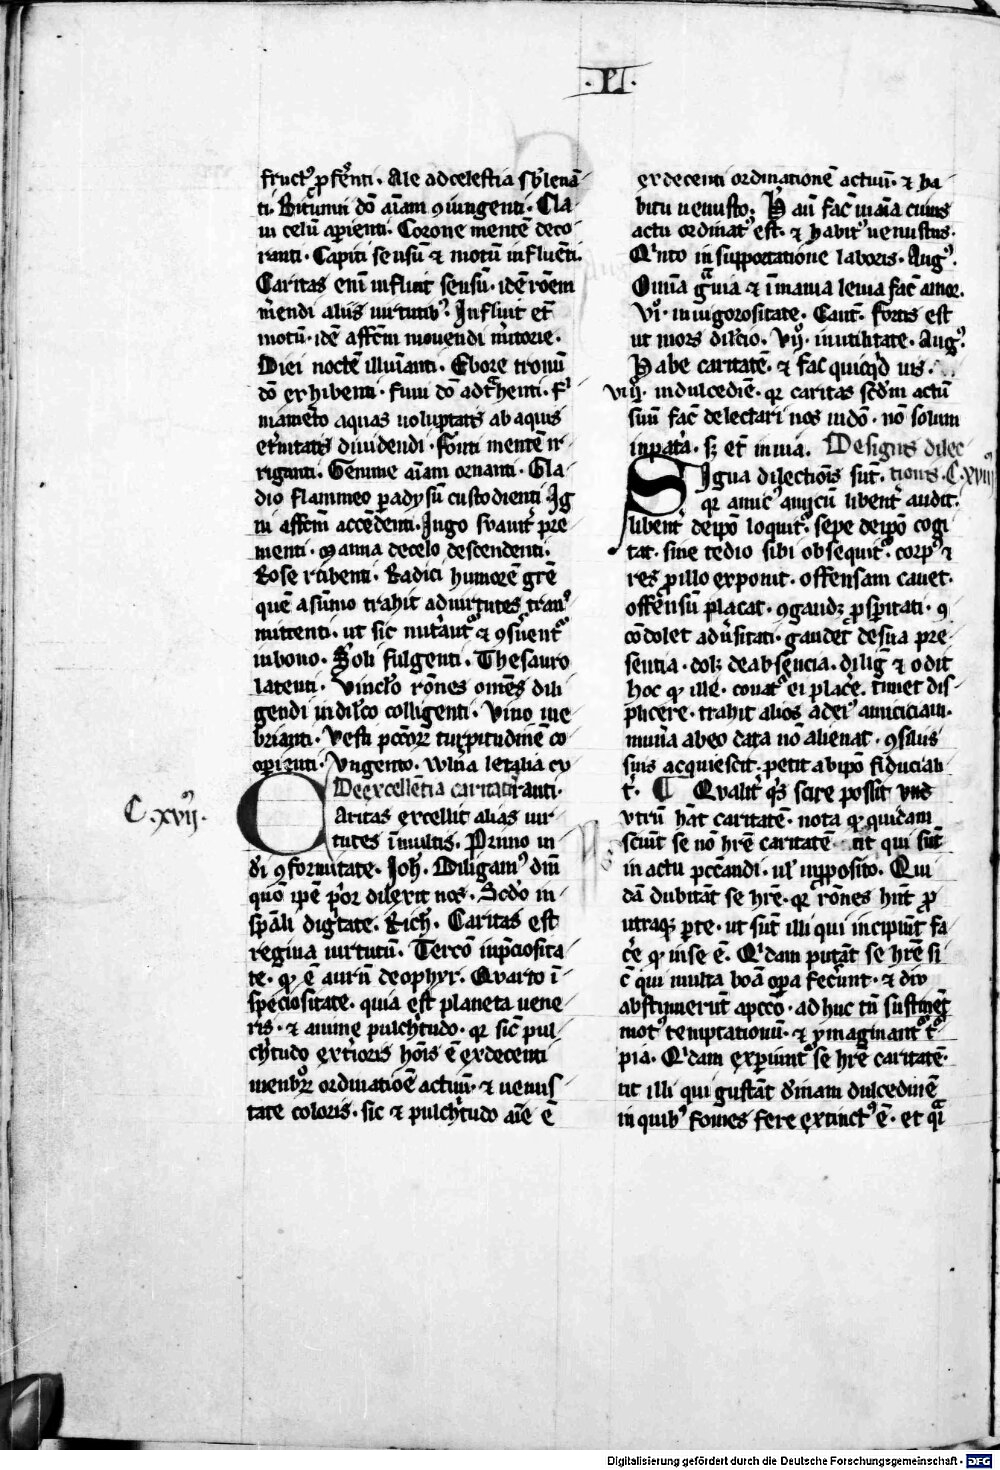 ·VI·
fructꝰ ꝓferenti · Ale ad celestia sbleuā
ti · Bitumini dō aīam ꝯiungenti · Cla
ui celū aꝑienti · Corone mentē deco
ranti · Capiti sensū ⁊ motū influēti ·
Caritas enī influit sensū · idē rōem
merendi aliis uirtutibꝰ · Influit et̄
motū · idē affc̄m mouendi merit̄orie ·
Diei noctē illuīanti · Ebore tronū
dō exhibenti · Funi dō adtͣhenti · Fi
mamēto aquas uoluptatis ab aquis
et̄nitatis diuidendi · Fonti mentē ir
riganti · Gemme aīam ornanti · Gla
dio flammeo ꝑadysū custodienti · Ig
ni affc̄m accēdenti · Iugo suauit̄ pre
menti · Manna de celo descendenti ·
Rose rubenti · Radici humorē grē
quē a sūmo trahit ad uirtutes tranſ
mittenti · ut sic nutriantͣ ⁊ ꝯsuentͣ
in bono · Soli fulgenti · Thesauro
latenti · Vinclo rōnes omēs dili
gendi in dilco colligenti · Vino ine
brianti · Vesti pccōꝝ turpitudinē co
oꝑienti · Vngento · vulna letalia cu
De excellētia caritatis ranti ·
C · xvijͦ ·
Caritas excellit alias uir
tutes ī multis · Primo in
di ꝯformitate · Joh̄ · Diligamꝰ dm̄
quō ipē pͥor dilexit nos · Scdo in
spāli digͥtate · Rich̄ · Caritas est
regina uirtutū · Tercō in p̄ciosita
te · qꝛ ē aurū de ophyr · Quarto ī
speciositate · quia est planeta uene
ris · ⁊ anime pulcͥtudo · qꝛ sic̄ pul
cͥtudo exterioris hōis ē ex decenti
menbꝝ ordinatiōe actuū · ⁊ uenus
tate coloris · sic ⁊ pulcͥtudo aīe ē
ex decenti ordinationē actuū · ⁊ ha
bitu uenusto · H̄ aū fac̄ in aīa cuius
actu ordinatꝰ est · ⁊ habitꝰ uenustus ·
Qͥnto in supportatione laboris · Augꝰ ·
Omīa gͣuia ⁊ īmania leuia fac̄ amor ·
Viͦ · in uigorositate · Cant̄ · fortis est
ut mors dilcīo · Vijͦ · in utilitate · Augꝰ
Habe caritatē · ⁊ fac quicqͥd uis ·
viijͦ · in dulcediē · qꝛ caritas scd̄m actū
suū fac̄ delectari nos in dō · nō solum
in pat̄a · sꝫ et̄ in uia · De signis dilec
Signa dilectiōis sūt · tionis · C · xviijͦ
qꝛ amicꝰ amicū libent̄ audit ·
libent̄ de ipō loquitꝰ · sepe de ipō cogi
tat · sine tedio sibi obsequitꝰ · corpꝰ ⁊
res ꝓ illo exponit · offensam cauet ·
offensū placat · ꝯgaudꝫ ꝓsperitati · ꝯ
cōdolet adūsitati · gaudet de sua pre
sentia · dolꝫ de absencia · diligͥ ⁊ odit
hoc qꝫ ille · conatͣ ei placēre · timet dis
plicere · trahit alios ad eiꝰ amiciciam ·
muīa ab eo data nō alienat · ꝯsiliis
suis acquiescit · petit ab ipō fiduciali
t̄ · ¶ Qualit̄ qͥs scire possit und
vtrū hāt caritatē · nota qꝫ quidam
sciūt se nō hrē caritatē · ut qui sūt
in actu pccandi · ul̄ in ꝓposito · Qui
dā dubitāt se hrē · qꝛ rōnes hn̄t ꝓ
utraqꝫ ꝑte · ut sūt illi qui incipiūt fa
c̄e qꝫ in se ē · Qͥdam putāt se hrē si
c̄ qui multa boā oꝑa fecerunt · ⁊ diu
abstinuerūt a pccō · ad huc tn̄ sustinēt
motꝰ temptationū · ⁊ ymaginantͣ tͣ
pia · Qͥdam experiunt̄ se hrē caritatē ·
ut illi qui gustāt diuinam dulcedinē
in quibꝰ fomes fere extinctꝰ ē · et qͣi
Digitalisierung gefördert durch die Deutsche Forschungsgemeinschaft · DFG